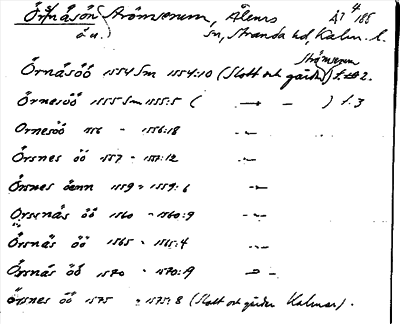 Örnäsön Strömserum, Ålems Ål 4 185
ö u. sn, Stranda hd, Kalm. l.
Strömserum
Örnäsöö 1554 Sm 1554:10 (Slott och gårdar) f. 2.
Örnesöö 1555 Sm 1555:5 ( — " — ) f. 3
Ornesöö 1556 " 1556:18 — " —
Örsnes öö 1557 " 1557:12 — " —
Örsnes öenn 1559 " 1559:6 — " —
Orssnäs öö 1560 " 1560:9 — " —
Örsnäs öö 1565 " 1565:4 — " —
Örsnäs öö 1570 " 1570:19 — " —
örsnes öö 1575 " 1575:8 (Slott och gårdar Kalmar).